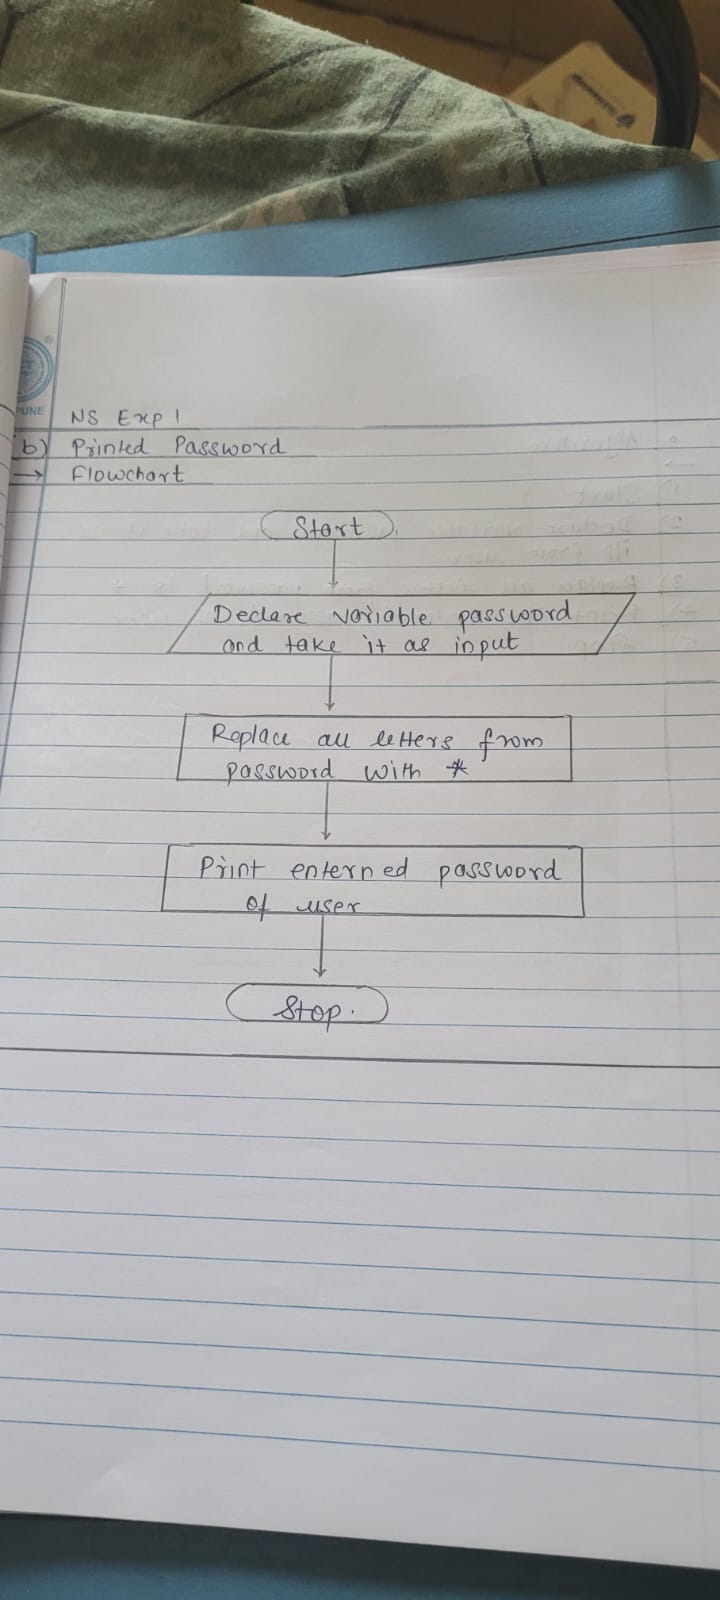 PUNE
NS Exp 1
b) Printed Password
→ Flowchart
Start
Declare variable password
and take it as input
Replace all letters from
password with *
Print enterned password
of user
Stop.